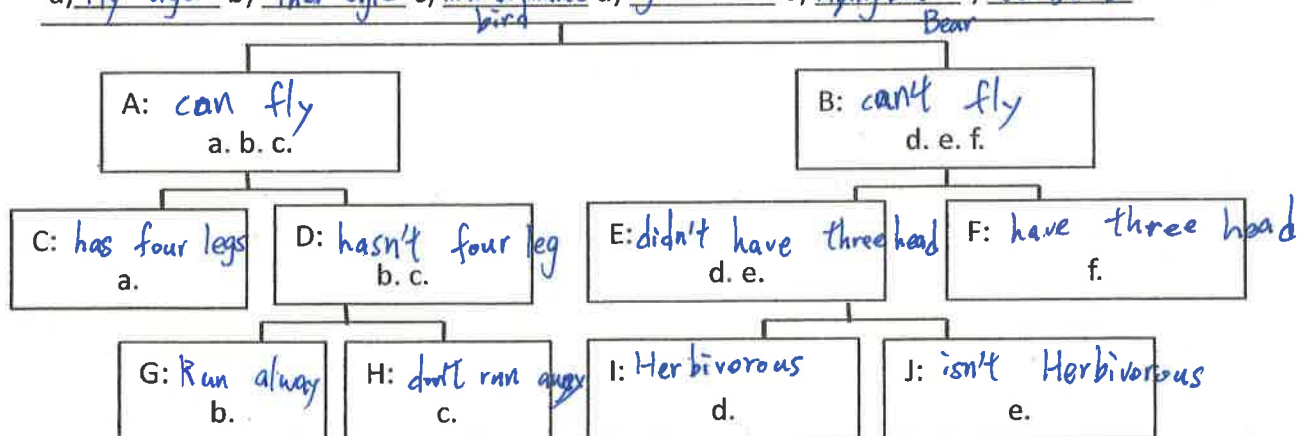 bird Bear
A: can fly
a. b. c.
B: can't fly
d. e. f.
C: has four legs
a.
D: hasn't four leg
b. c.
E: didn't have three head
d. e.
F: have three head
f.
G: Run alway
b.
H: don't run away
c.
I: Herbivorous
d.
J: isn't Herbivorous
e.